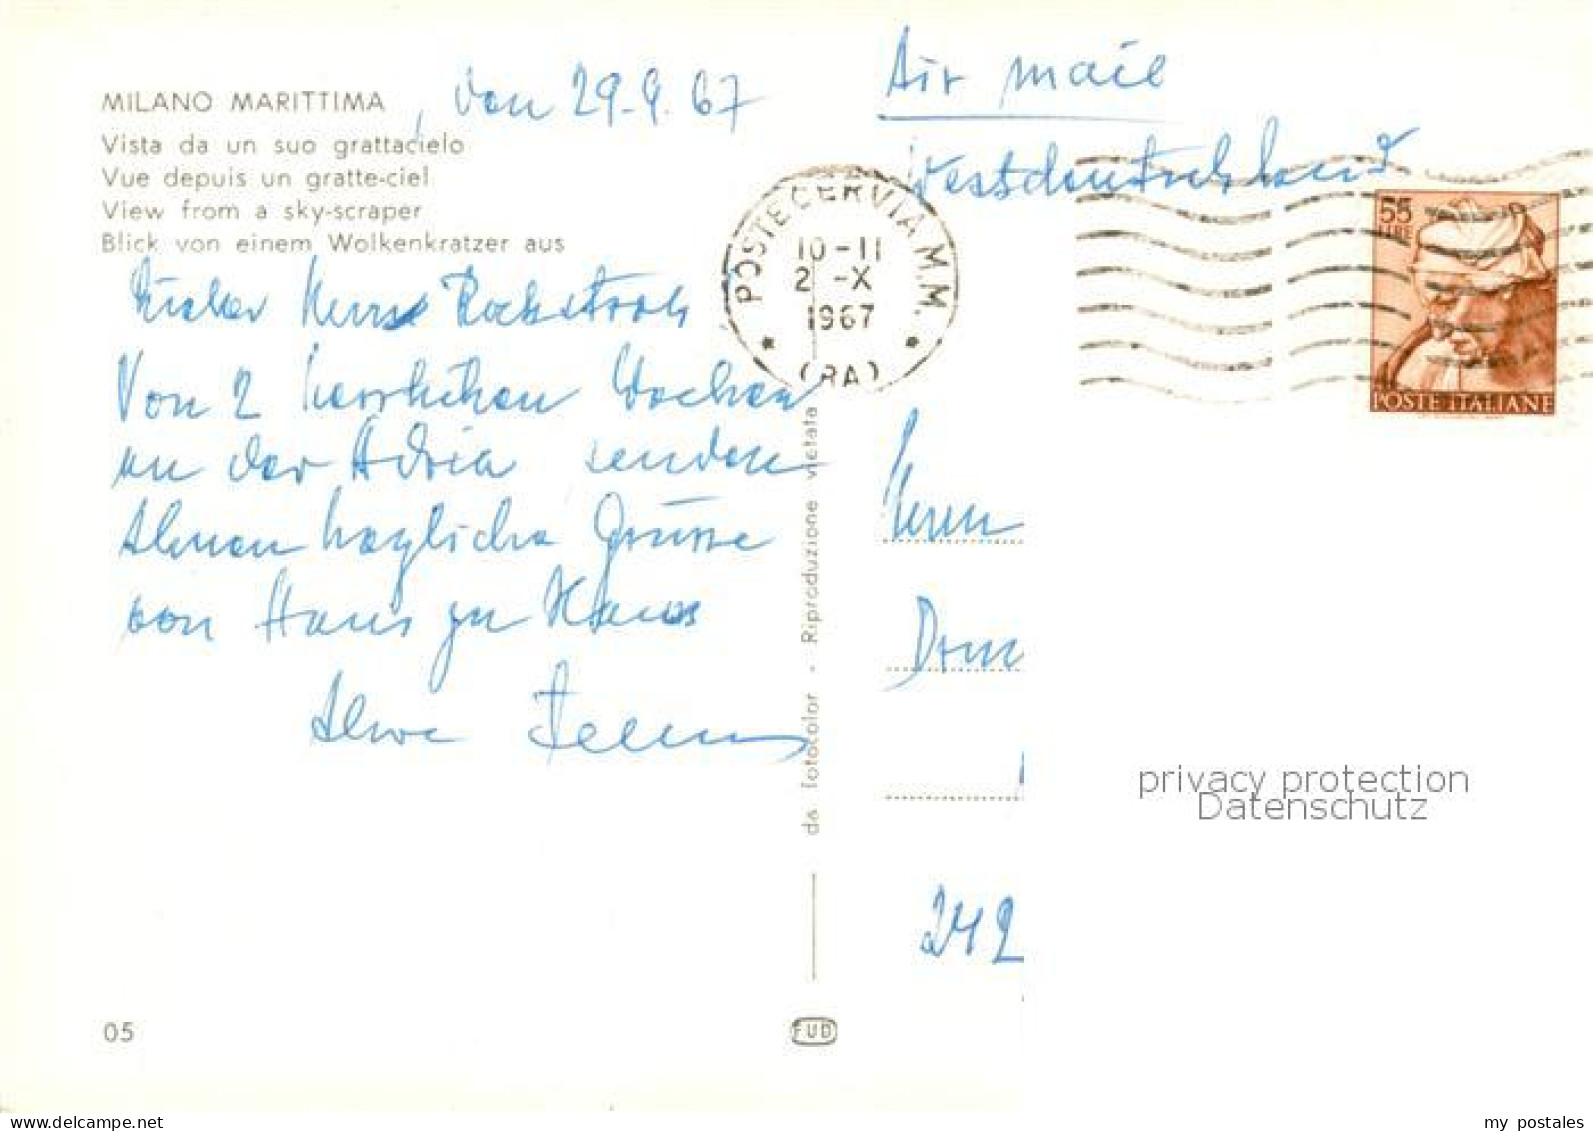 MILANO MARITTIMA , den 29.9.67
Vista da un suo grattacielo
Vue depuis un gratte-ciel
View from a sky-scraper
Blick von einem Wolkenkratzer aus
Lieber Herr Rockstroh
Von 2 herrlichen Wochen
an der Adria senden
Ihnen herzliche Grüsse
von Haus zu Haus
Ihre
da fotocolor - Riproduzione vietata
FUD
05
Air mail
Westdeutschland
POSTE CERVIA M.M.
10-11
2 -X
1967
(RA)
55
LIRE
POSTE ITALIANE
Herrn
242
privacy protection
Datenschutz
my postales